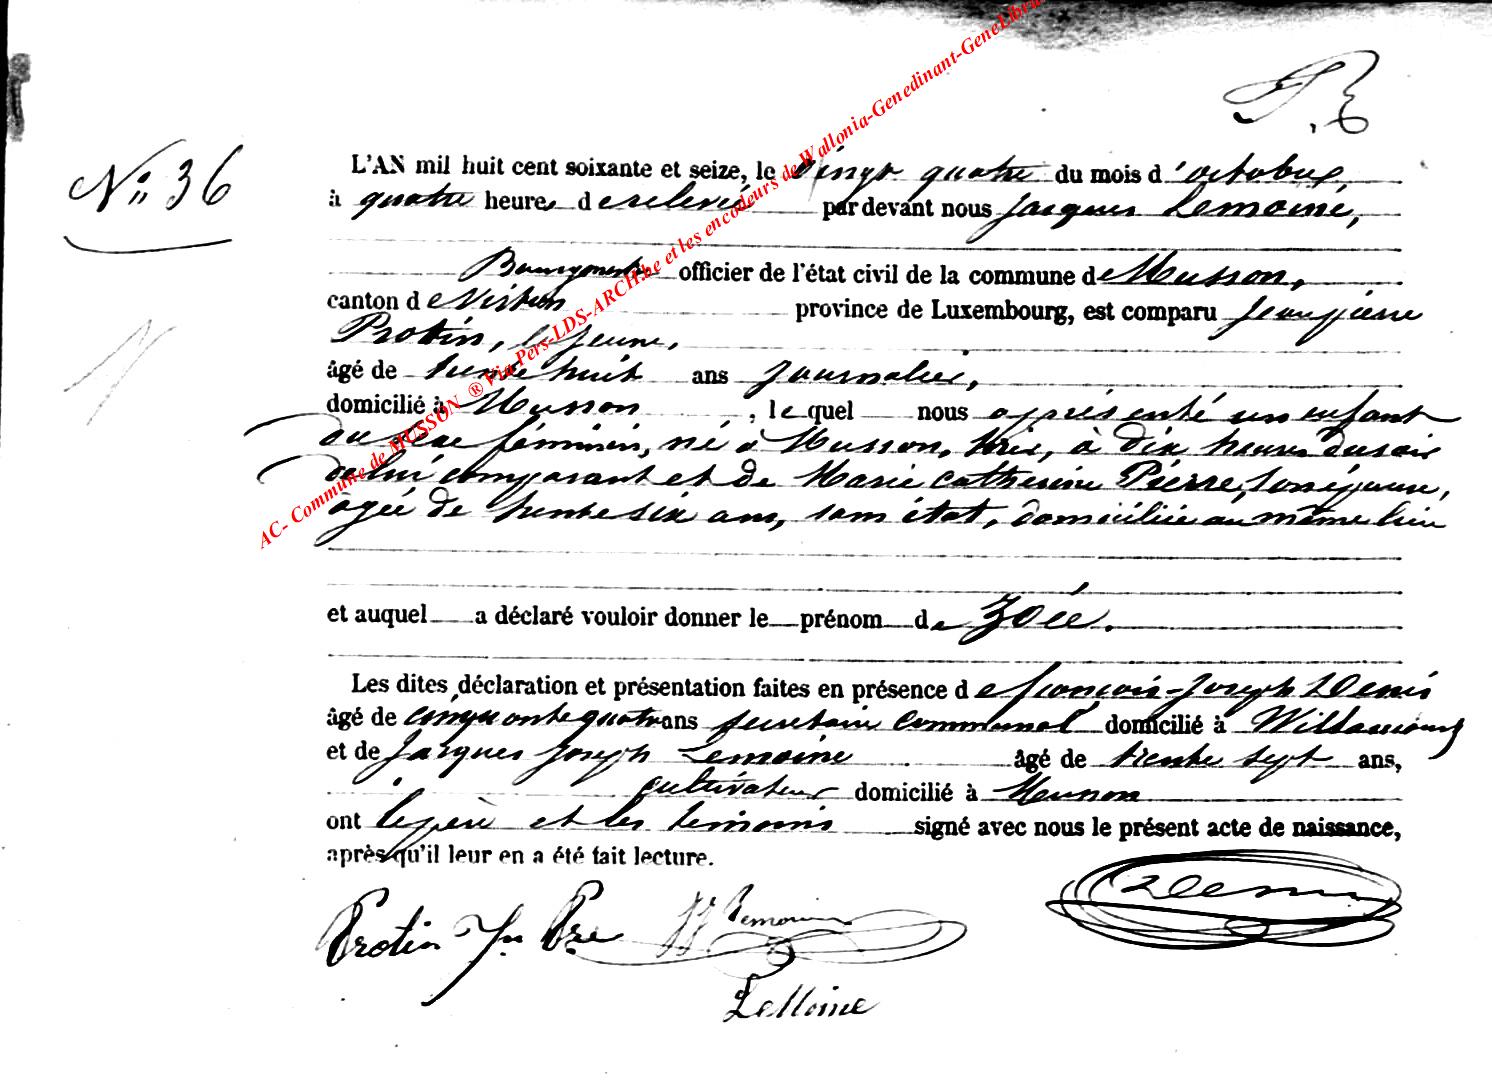 N° 36
L'AN mil huit cent soixante et seize, le vingt quatre du mois d'octobre,
à quatre heures de relevée par devant nous Jacques Lemoine,
Bourgmestre officier de l'état civil de la commune de Musson,
canton de Virton province de Luxembourg, est comparu Jean pierre
Protin, le jeune,
âgé de trente huit ans journalier,
domicilié à Musson, lequel nous a présenté un enfant
du sexe féminin, né à Musson, hier, à dix heures du soir
de lui comparant et de Marie Catherine Pierre, son épouse,
âgée de trente six ans, sans état, domiciliée au même lieu
et auquel a déclaré vouloir donner le prénom de Zoée.
Les dites déclaration et présentation faites en présence de françois-Joseph Denis
âgé de cinquante quatre ans secretaire communal domicilié à Willancourt
et de Jacques Joseph Lemoine âgé de trente sept ans,
cultivateur domicilié à Musson
ont le père et les témoins signé avec nous le présent acte de naissance,
après qu'il leur en a été fait lecture.
Protin Jn Pre JJ Lemoine Denis
LeMoine
AC- Commune de MUSSON ® Via Pers-LDS-ARCH.be et les encodeurs de Wallonia-Genedinant-GeneLibre